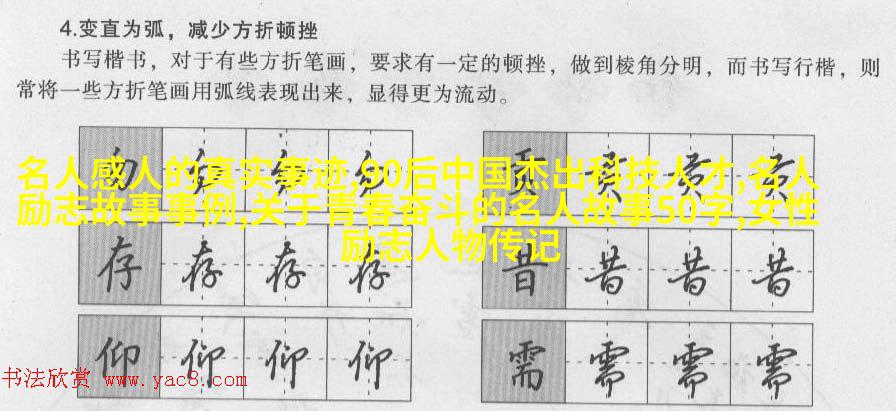 4.变直为弧，减少方折顿挫
书写楷书，对于有些方折笔画，要求有一定的顿挫，做到棱角分明，而书写行楷，则
常将一些方折笔画用弧线表现出来，显得更为流动。
名人感人的真实事迹,90后中国杰出科技人才,名人
励志故事事例,关于青春奋斗的名人故事50字,女性
励志人物传记
存 存 存 存
昔 昔 昔 昔
仰 仰 仰 仰
需 需 需 需
书法欣赏 www.yac8.com